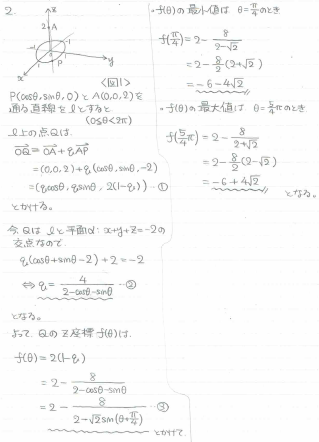 2.
z
2 A
-1
1
P
y
x
<図1>
P(cosθ, sinθ, 0) と A(0,0,2) を
通る直線を l とすると
(0≦θ<2π)
l上の点Qは
OQ = OA + qAP
= (0,0,2) + q(cosθ, sinθ, -2)
= (qcosθ, qsinθ, 2(1-q)) …①
とかける。
今 Qは lと平面α: x+y+z=-2の
交点なので
q(cosθ+sinθ-2)+2=-2
⇔ q = 4/(2-cosθ-sinθ) …②
となる。
よって Qの Z座標 f(θ)は.
f(θ) = 2(1-q)
= 2 - 8/(2-cosθ-sinθ)
= 2 - 8/(2-√2sin(θ+π/4)) …③
とかけて
・f(θ)の最小値は θ=π/4のとき
f(π/4) = 2 - 8/(2-√2)
= 2 - 8/2(2+√2)
= -6-4√2
・f(θ)の最大値は θ=5/4πのとき
f(5/4π) = 2 - 8/(2+√2)
= 2 - 8/2(2-√2)
= -6+4√2
となる。